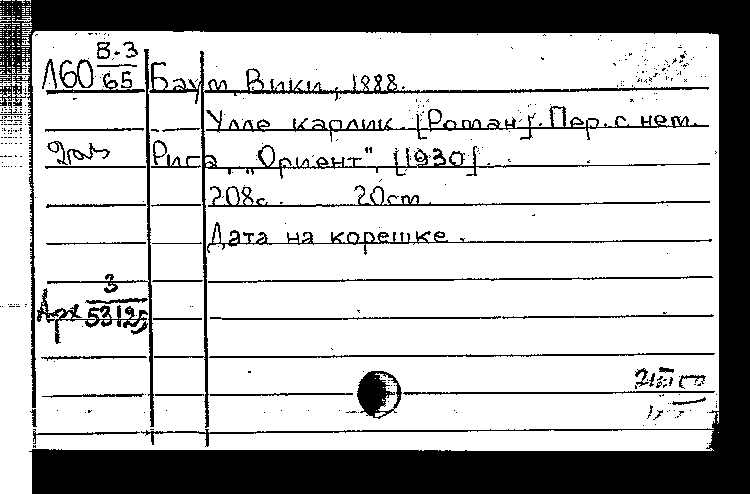 160 В-3/65 Баум, Вики, 1888.
Улле карлик. [Роман]. Пер. с нем.
Рига, „Ориент", [1930].
208с. 20см.
Дата на корешке.
Арх 3/53125